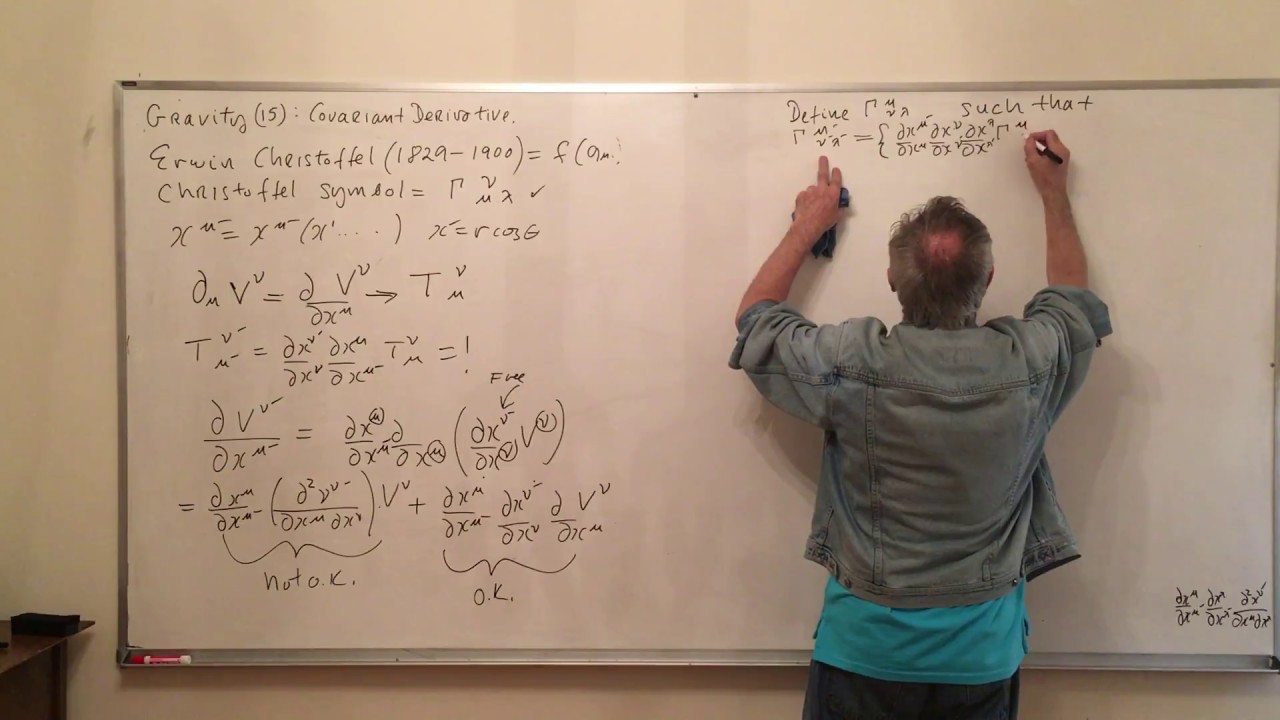 Gravity (15): Covariant Derivative.
Erwin Christoffel (1829-1900) = f(gμ.)
Christoffel symbol = Γ^ν_μλ ✓
x^μ' = x^μ'(x^1....) x' = r cosθ
∂_μ V^ν = ∂/∂x^μ V^ν → T_μ^ν
T_μ'^ν' = ∂x^ν'/∂x^ν ∂x^μ/∂x^μ' T_μ^ν = !
Free
∂V^ν'/∂x^μ' = ∂x^μ/∂x^μ' ∂/∂x^μ (∂x^ν'/∂x^ν V^ν)
= ∂x^μ/∂x^μ' (∂²ν^ν'/∂x^μ ∂x^ν) V^ν + ∂x^μ/∂x^μ' ∂x^ν'/∂x^ν ∂/∂x^μ V^ν
not o.k.
o.k.
Define Γ^μ_νλ such that
Γ^μ'_ν'λ' = { ∂x^μ'/∂x^μ ∂x^ν/∂x^ν' ∂x^λ/∂x^λ' Γ^μ
∂x^μ/∂x^μ' ∂x^λ/∂x^λ' ∂²x^ν'/∂x^μ∂x^λ